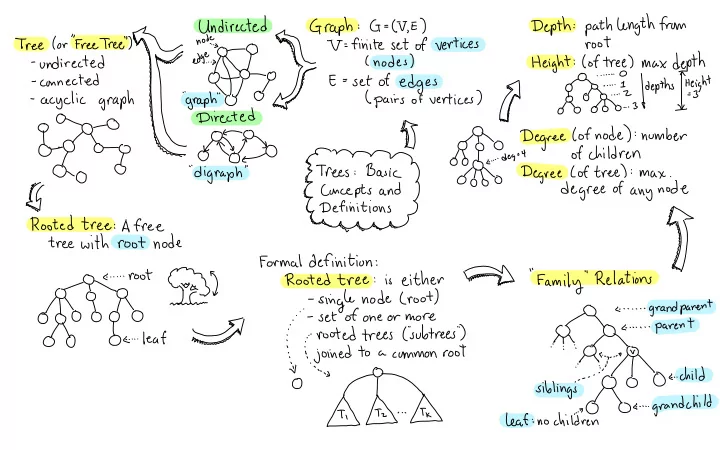 Trees: Basic
Concepts and
Definitions
Graph: G=(V,E)
V= finite set of vertices
(nodes)
E = set of edges
(pairs of vertices)
Undirected
node
edge
"graph"
Directed
"digraph"
Tree (or "Free Tree")
- undirected
- connected
- acyclic graph
Rooted tree: A free
tree with root node
root
leaf
Formal definition:
Rooted tree: is either
- single node (root)
- set of one or more
rooted trees ("subtrees")
joined to a common root
T1 T2 ... Tk
"Family" Relations
grandparent
parent
v
siblings
child
grandchild
leaf: no children
Depth: path length from
root
Height: (of tree) max depth
0
1
2
3
depths
Height
=3
Degree (of node): number
of children
Degree (of tree): max.
degree of any node
deg=4